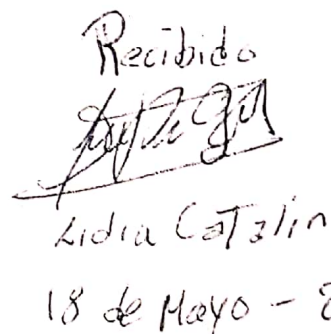 Recibido
Lidia Catalin
18 de Mayo - 8